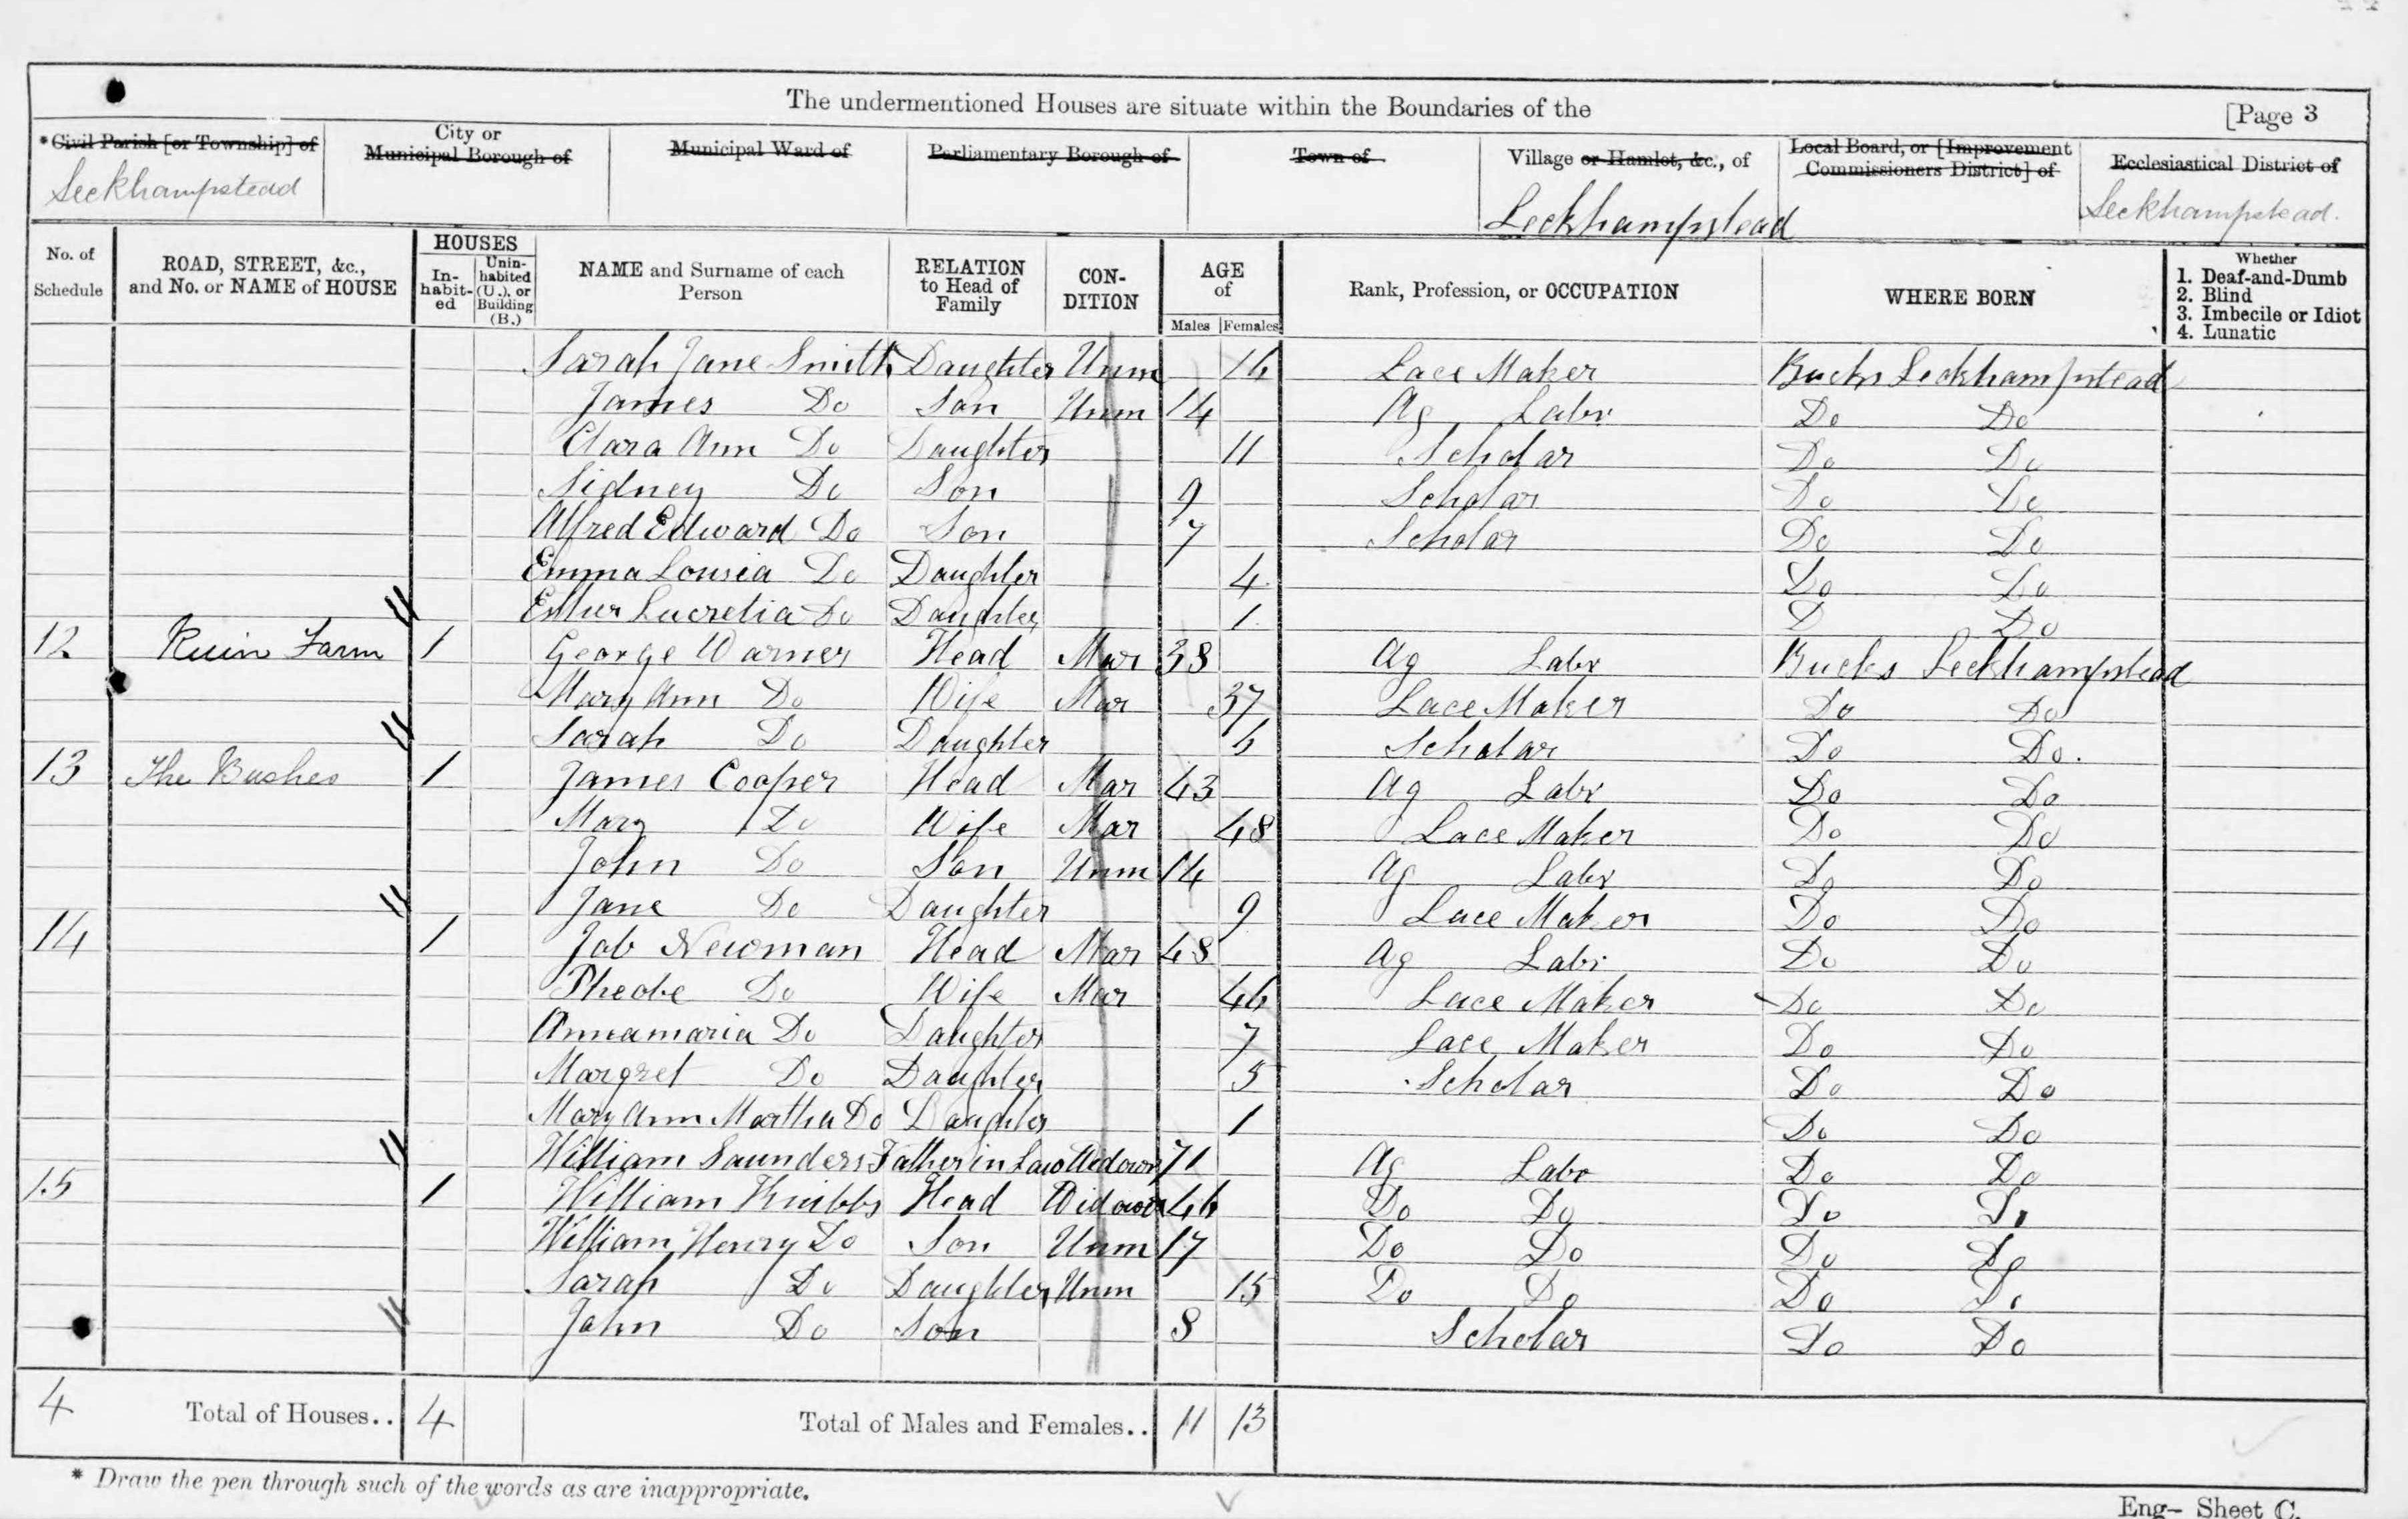 The undermentioned Houses are situate within the Boundaries of the [Page 3
*Civil Parish [or Township] of Leckhampstead
City or Municipal Borough of
Municipal Ward of
Parliamentary Borough of
Town of
Village or Hamlet, &c., of Leckhampstead
Local Board, or [Improvement Commissioners District] of
Ecclesiastical District of Leckhampstead.
No. of Schedule
ROAD, STREET, &c., and No. or NAME of HOUSE
HOUSES
In-habit-ed
Unin-habited (U.), or Building (B.)
NAME and Surname of each Person
RELATION to Head of Family
CON-DITION
AGE of
Males Females
Rank, Profession, or OCCUPATION
WHERE BORN
Whether
1. Deaf-and-Dumb
2. Blind
3. Imbecile or Idiot
4. Lunatic
Sarah Jane Smith Daughter Unm 16 Lace Maker Bucks Leckhampstead
James Do Son Unm 14 Ag Labr Do Do
Clara Ann Do Daughter 11 Scholar Do Do
Sidney Do Son 9 Scholar Do Do
Alfred Edward Do Son 7 Scholar Do Do
Emma Lousia Do Daughter 4 Do Do
Esther Lucretia Do Daughter 1 D Do
12 Ruin Farm 1 George Warner Head Mar 38 Ag Labr Bucks Leckhampstead
Mary Ann Do Wife Mar 37 Lace Maker Do Do
Sarah Do Daughter Scholar Do Do.
13 The Bushes 1 James Cooper Head Mar 43 Ag Labr Do Do
Mary Do Wife Mar 48 Lace Maker Do Do
John Do Son Unm 14 Ag Labr Do Do
Jane Do Daughter 9 Lace Maker Do Do
14 1 Job Newman Head Mar 48 Ag Labr Do Do
Pheobe Do Wife Mar 46 Lace Maker Do Do
Annamaria Do Daughter 7 Lace Maker Do Do
Margret Do Daughter 5 Scholar Do Do
Mary Ann Martha Do Daughter 1 Do Do
William Saunders Father in Law Widower 71 Ag Labr Do Do
15 1 William Knibbs Head Widower 46 Do Do Do Do
William Henry Do Son Unm 17 Do Do Do Do
Sarah Do Daughter Unm 15 Do Do Do Do
John Do Son 8 Scholar Do Do
4 Total of Houses.. 4 Total of Males and Females.. 11 13
* Draw the pen through such of the words as are inappropriate.
Eng- Sheet C.